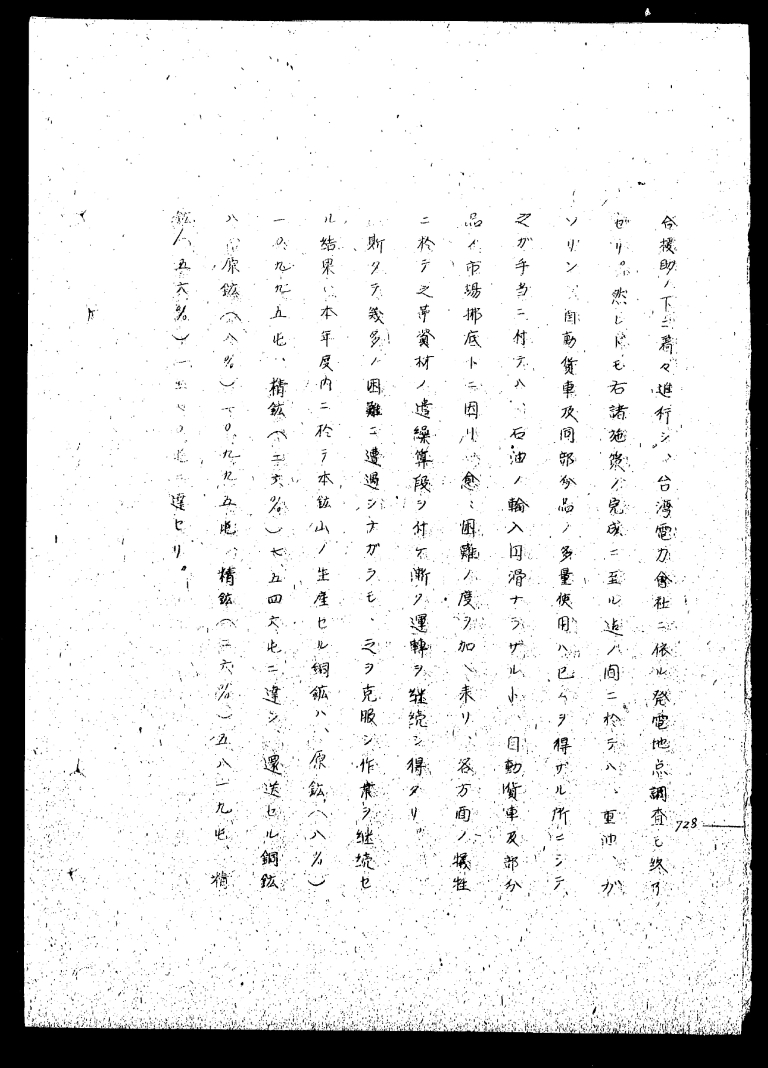 合援助ノ下ニ着々進行シ、台湾電力會社ニ依ル発電地点調査モ終了
セリ。然レドモ右諸施策ノ完成ニ至ル迄ノ間ニ於テハ、重油、ガ
ソリン、自動貨車及同部分品ノ多量使用ハ已ムヲ得ザル所ニシテ
之ガ手当ニ付テハ、石油ノ輸入円滑ナラザルト、自動貨車及部分
品ノ市場拂底トニ因リ、愈々困難ノ度ヲ加ヘ来リ、各方面ノ犠牲
ニ於テ之等資材ノ遣繰算段ヲ付ケ漸ク運轉ヲ継続シ得タリ。
斯クテ幾多ノ困難ニ遭遇シナガラモ、之ヲ克服シ作業ヲ継続セ
ル結果、本年度内ニ於テ本鉱山ノ生産セル銅鉱ハ、原鉱(八%)
一〇、九九五屯、精鉱(二六%)七、五四六屯ニ達シ、還送セル銅鉱
ハ、原鉱(八%)一〇、九九五屯、精鉱(二六%)五八一九屯、精
鉱(五六%)屯ニ達セリ。
728